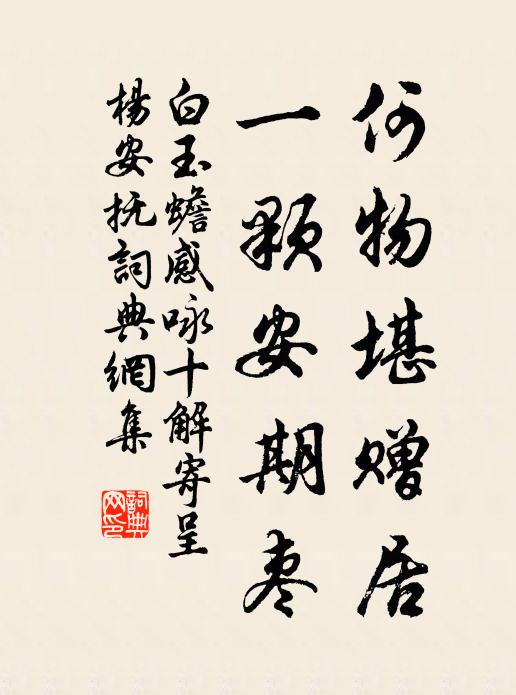 何物堪赠居
一颗安期枣
白玉蟾感咏十解寄呈
杨安抚詞典網集
詞典网印